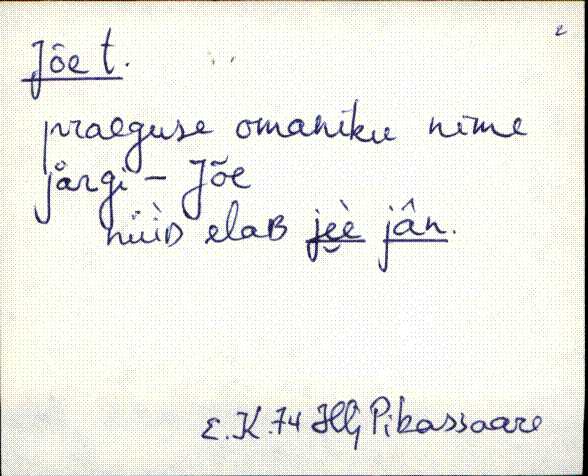 2
Jõe t.
praeguse omaniku nime
järgi – Jõe
nüìD elaB je̮è jân.
E.K. 74 Hlj Pikassaare